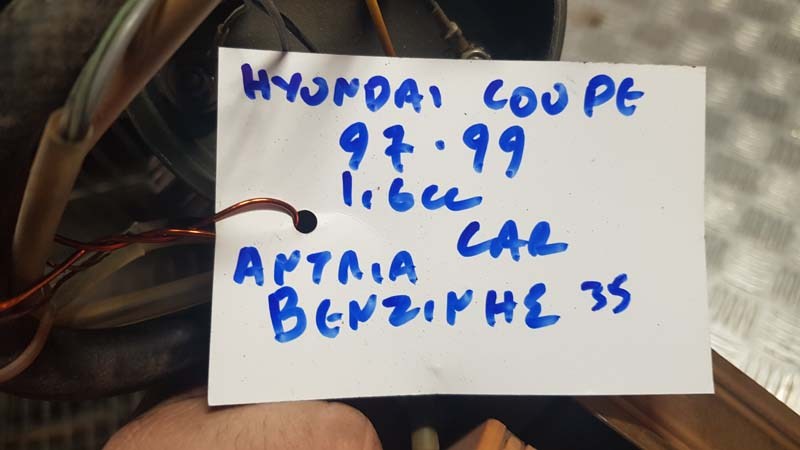 HYUNDAI COUPE
97.99
1.6cc
CAR
ΑΝΤΛΙΑ
ΒΕΝΖΙΝΗΣ 35